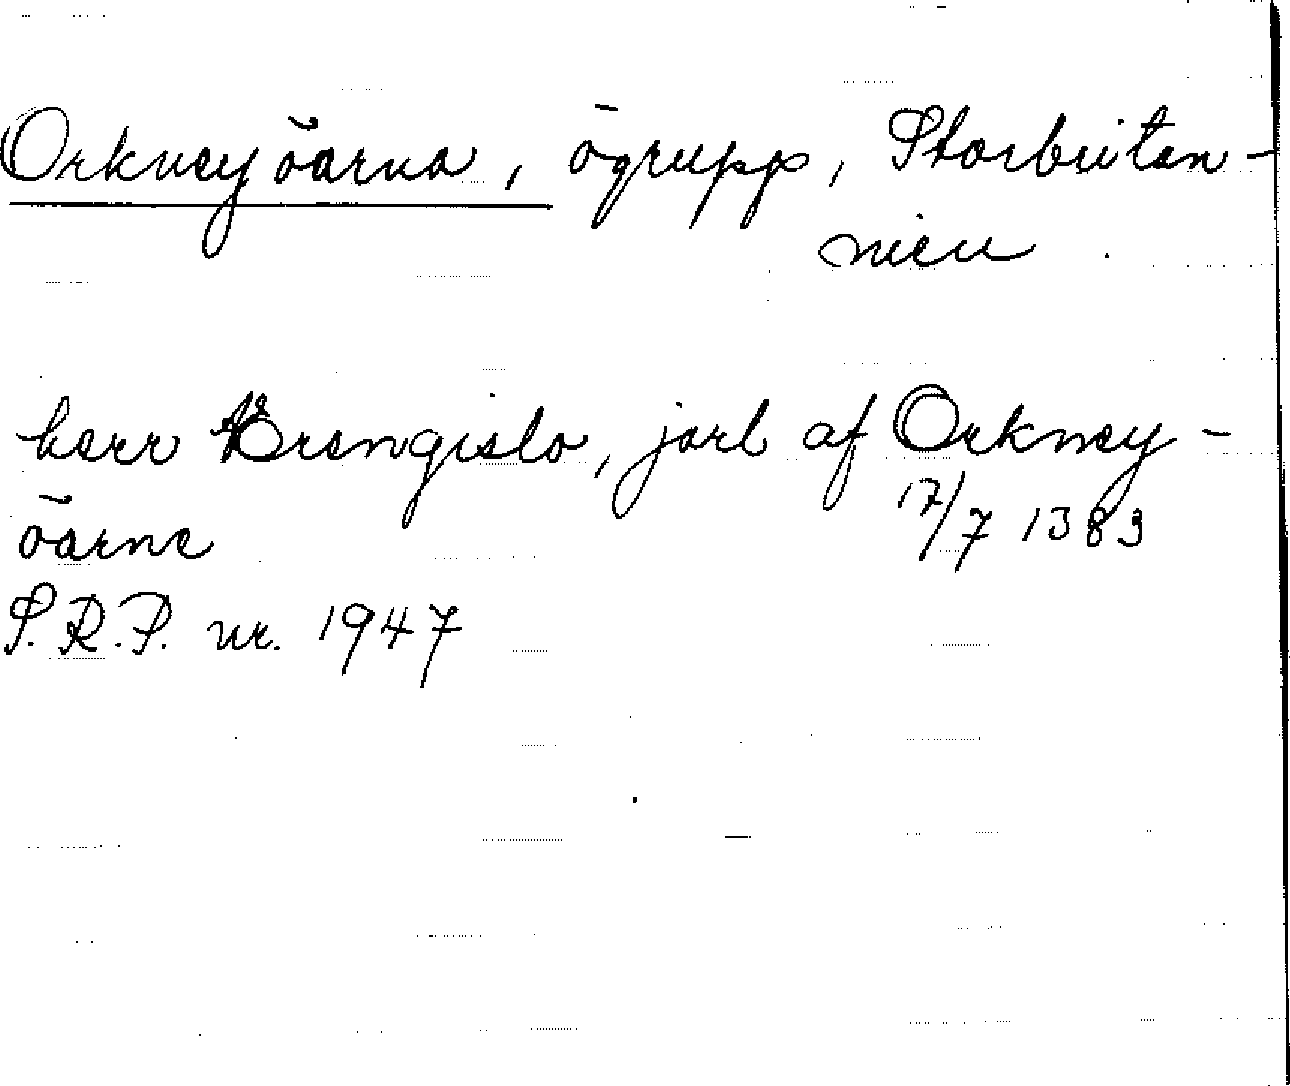 Orkneyöarna, ögrupp, Storbritan-
nien.
herr Erengisla, jarl af Orkney-
öarne 17/7 1383
S.R.P. nr. 1947